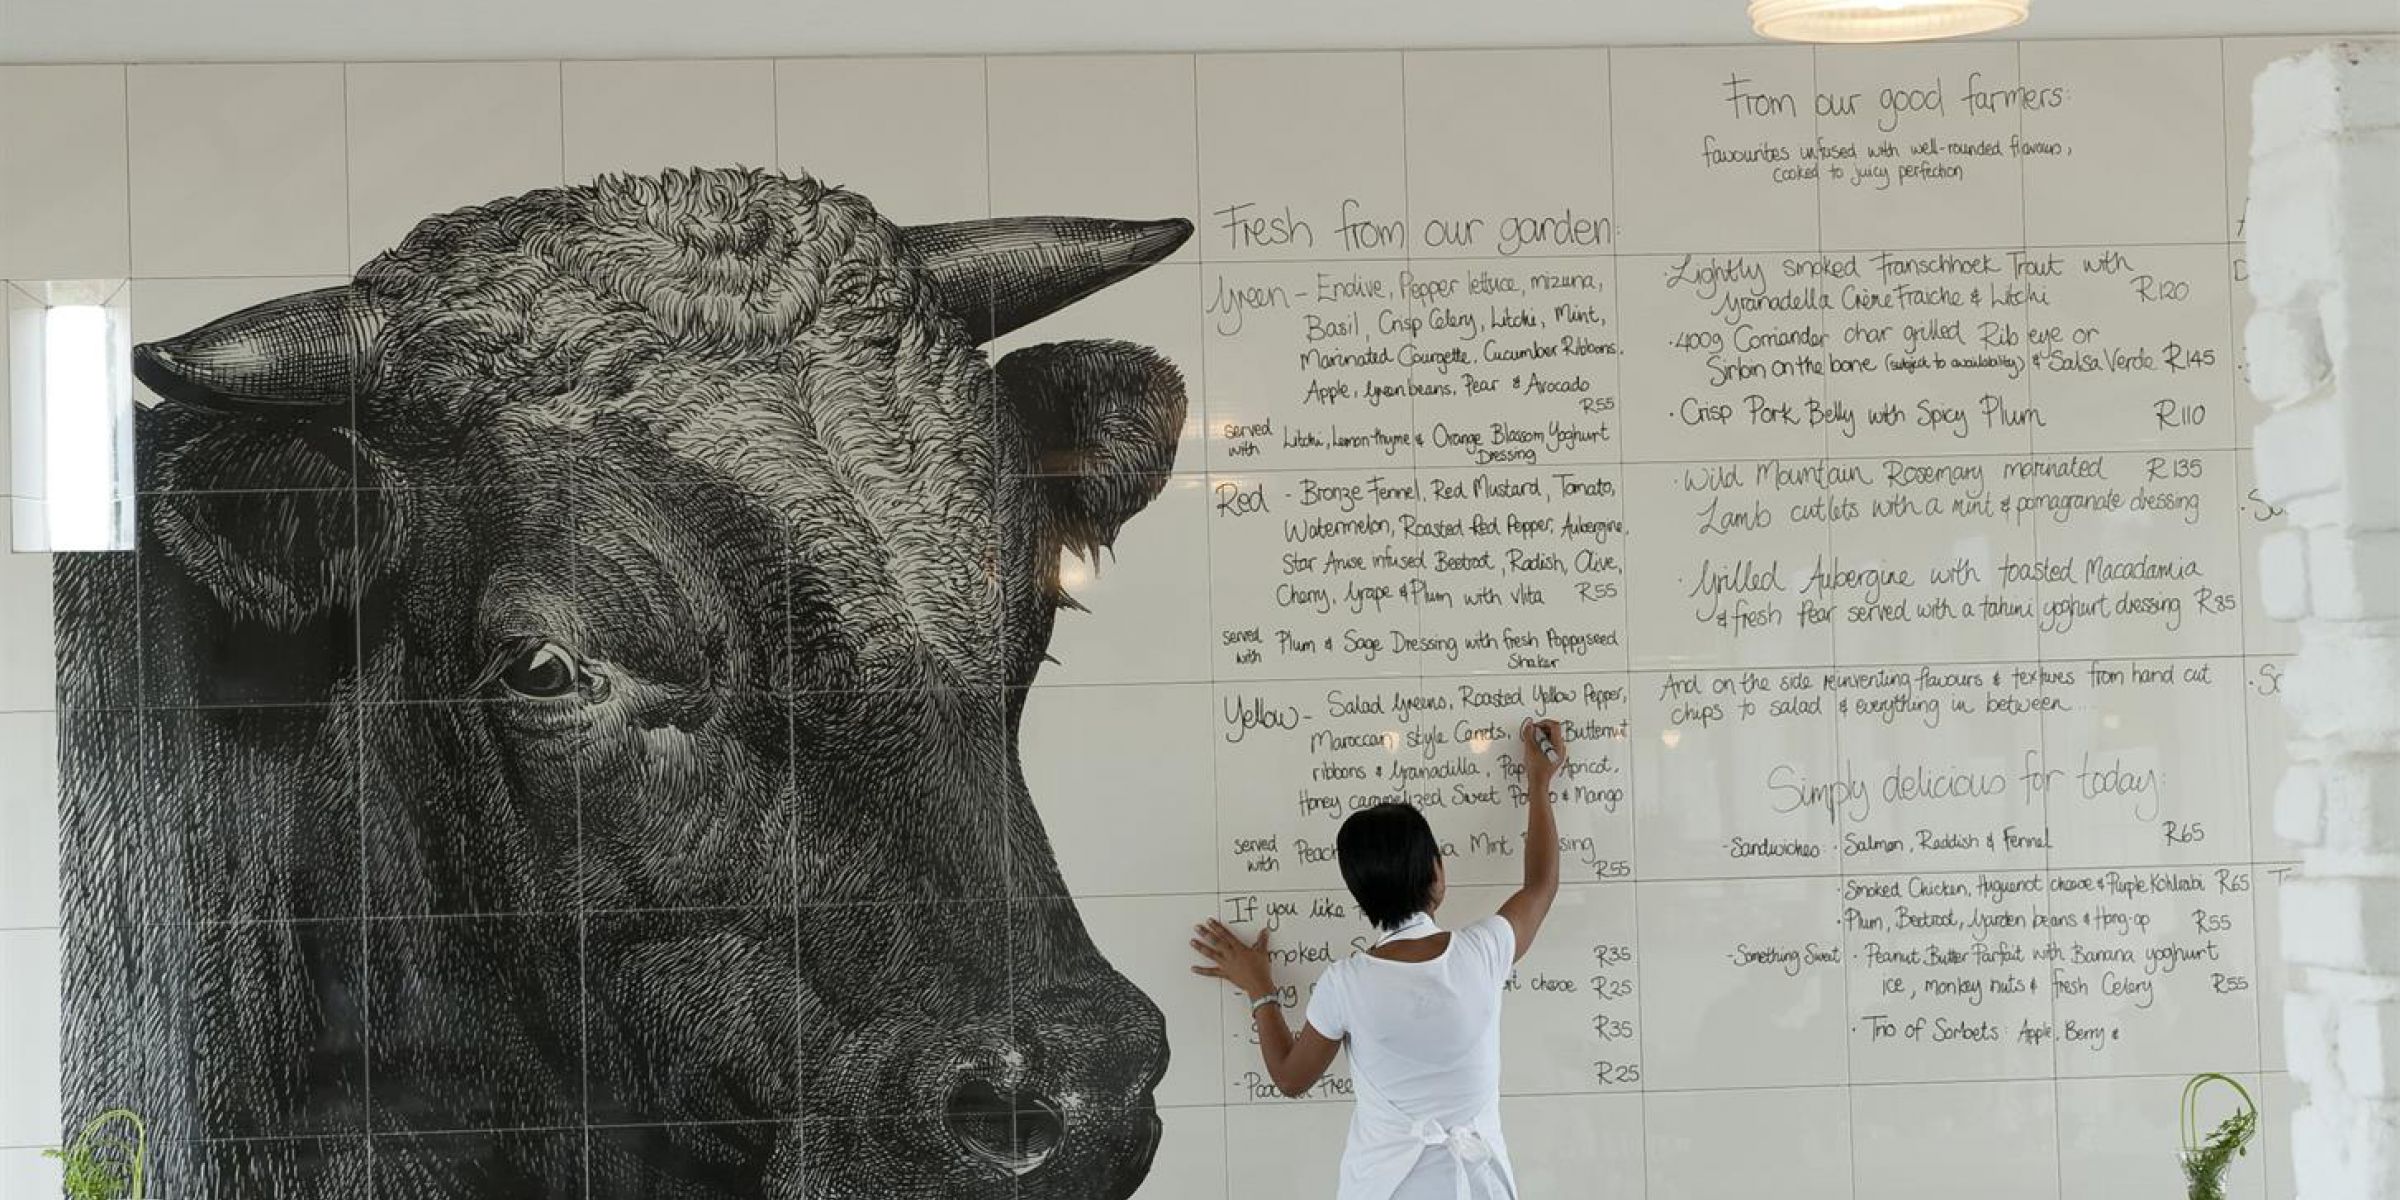 Fresh from our garden:
Green – Endive, Pepper lettuce, mizuna,
Basil, Crisp Celery, Litchi, Mint,
Marinated Courgette, Cucumber Ribbons,
Apple, Green beans, Pear & Avocado
R55
served with Litchi, Lemon thyme & Orange Blossom Yoghurt
Dressing
Red - Bronze Fennel, Red Mustard, Tomato,
Watermelon, Roasted Red Pepper, Aubergine,
Star Anise infused Beetroot, Radish, Olive,
Cherry, Grape & Plum with vlita R55
served with Plum & Sage Dressing with fresh Poppyseed
Shaker
Yellow - Salad Greens, Roasted Yellow Pepper,
Maroccan style Carrots, Butternut
ribbons & Granadilla, Apricot,
Honey caramelized Sweet & Mango
served with Mint
R55
If you like
R35
R25
R35
R25
From our good farmers:
favourites infused with well-rounded flavours,
cooked to juicy perfection
· Lightly smoked Franschhoek Trout with
Granadella Crème Fraiche & Litchi R120
· 400g Corriander char grilled Rib eye or
Sirloin on the bone (subject to availability) & Salsa Verde R145
· Crisp Pork Belly with Spicy Plum R110
· Wild Mountain Rosemary marinated R135
Lamb cutlets with a mint & pomagranate dressing
· Grilled Aubergine with toasted Macadamia
& fresh Pear served with a tahini yoghurt dressing R85
And on the side reinventing flavours & textures from hand cut
chips to salad & everything in between...
Simply delicious for today:
- Sandwiches · Salmon, Raddish & Fennel R65
· Smoked Chicken, Huguenot cheese & Purple Kohlrabi R65
· Plum, Beetroot, Garden beans & Hang-op R55
- Something Sweet · Peanut Butter Parfait with Banana yoghurt
ice, monkey nuts & fresh Celery R55
· Trio of Sorbets: Apple, Berry &